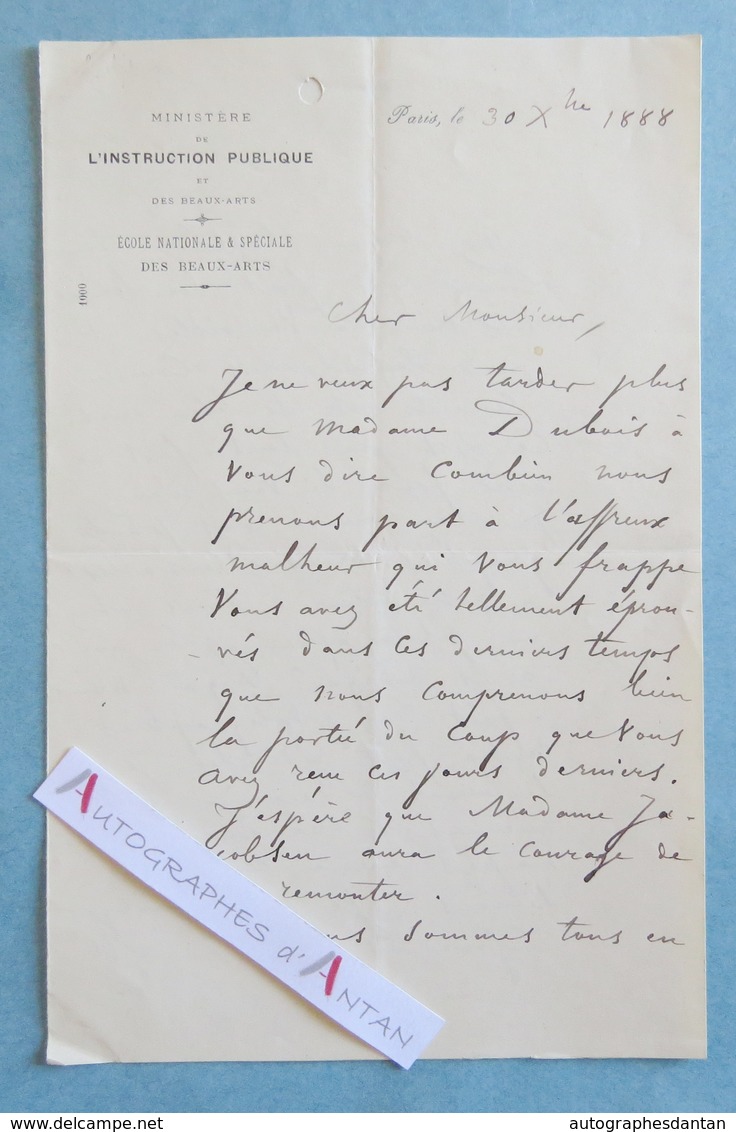 MINISTÈRE
DE
L'INSTRUCTION PUBLIQUE
ET
DES BEAUX-ARTS
ÉCOLE NATIONALE & SPÉCIALE
DES BEAUX-ARTS
1000
Paris, le 30 Xbre 1888
Cher Monsieur,
Je ne veux pas tarder plus
que Madame Dubois à
vous dire combien nous
prenons part à l'affreux
malheur qui vous frappe
Vous avez été tellement éprou-
-vés dans ces derniers temps
que nous comprenons bien
la portée du coup que vous
avez reçu ces jours derniers.
J'espère que Madame Ja-
cobsen aura le courage de
remonter.
sommes tous en
AUTOGRAPHES d'ANTAN
delcampe.net
autographesdantan